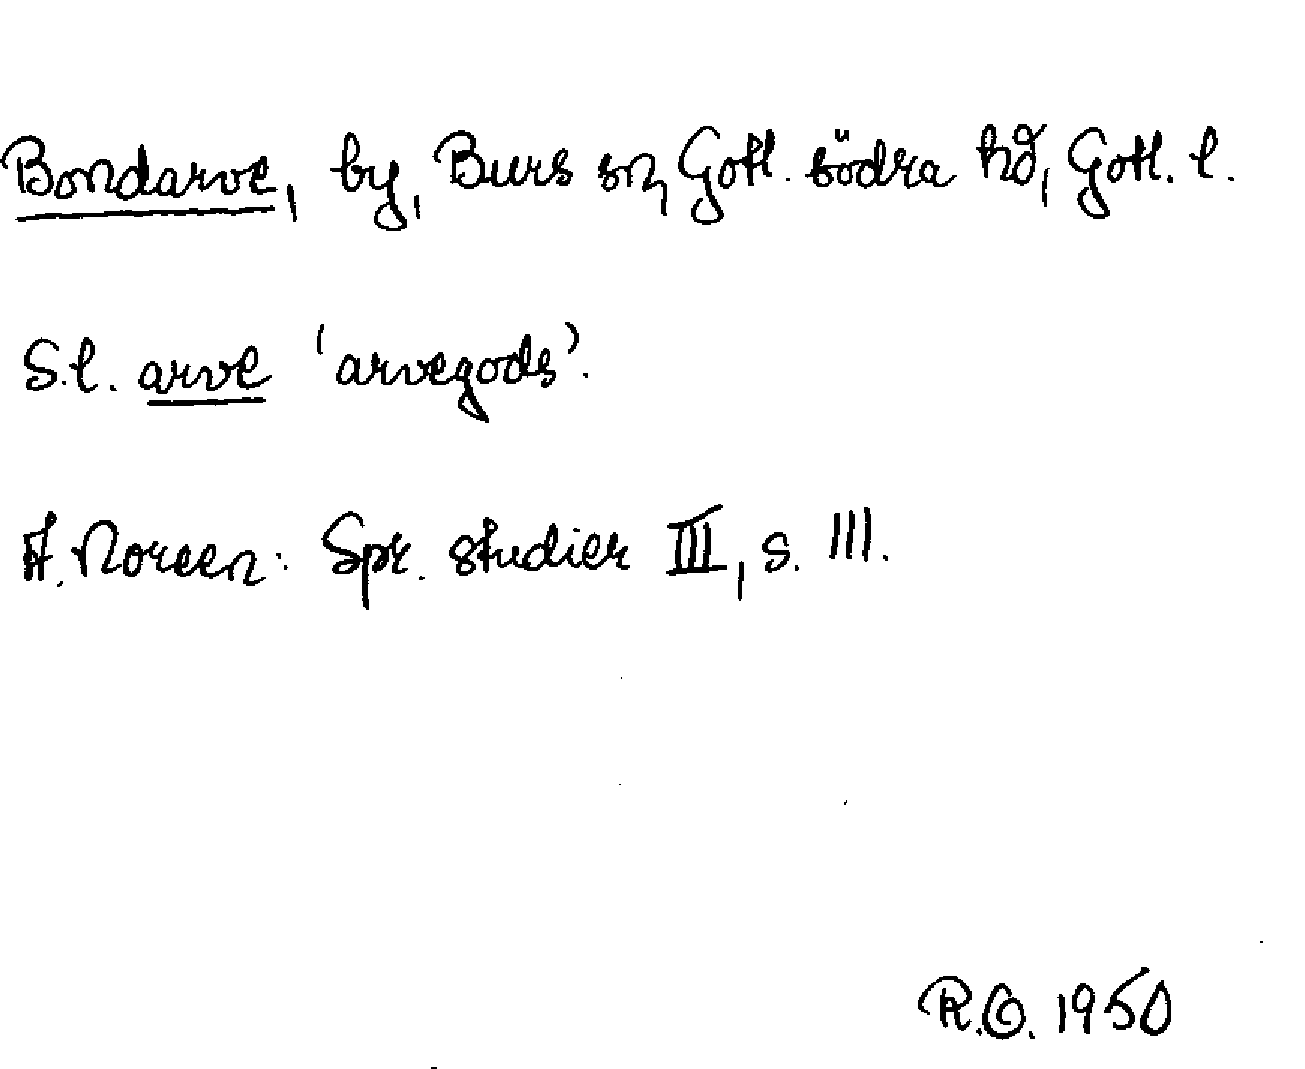 Bondarve, by, Burs sn, Gotl. södra hd, Gotl. l.
S.l. arve 'arvegods'.
A. Noreen: Spr. studier III, s. 111.
R.O. 1950